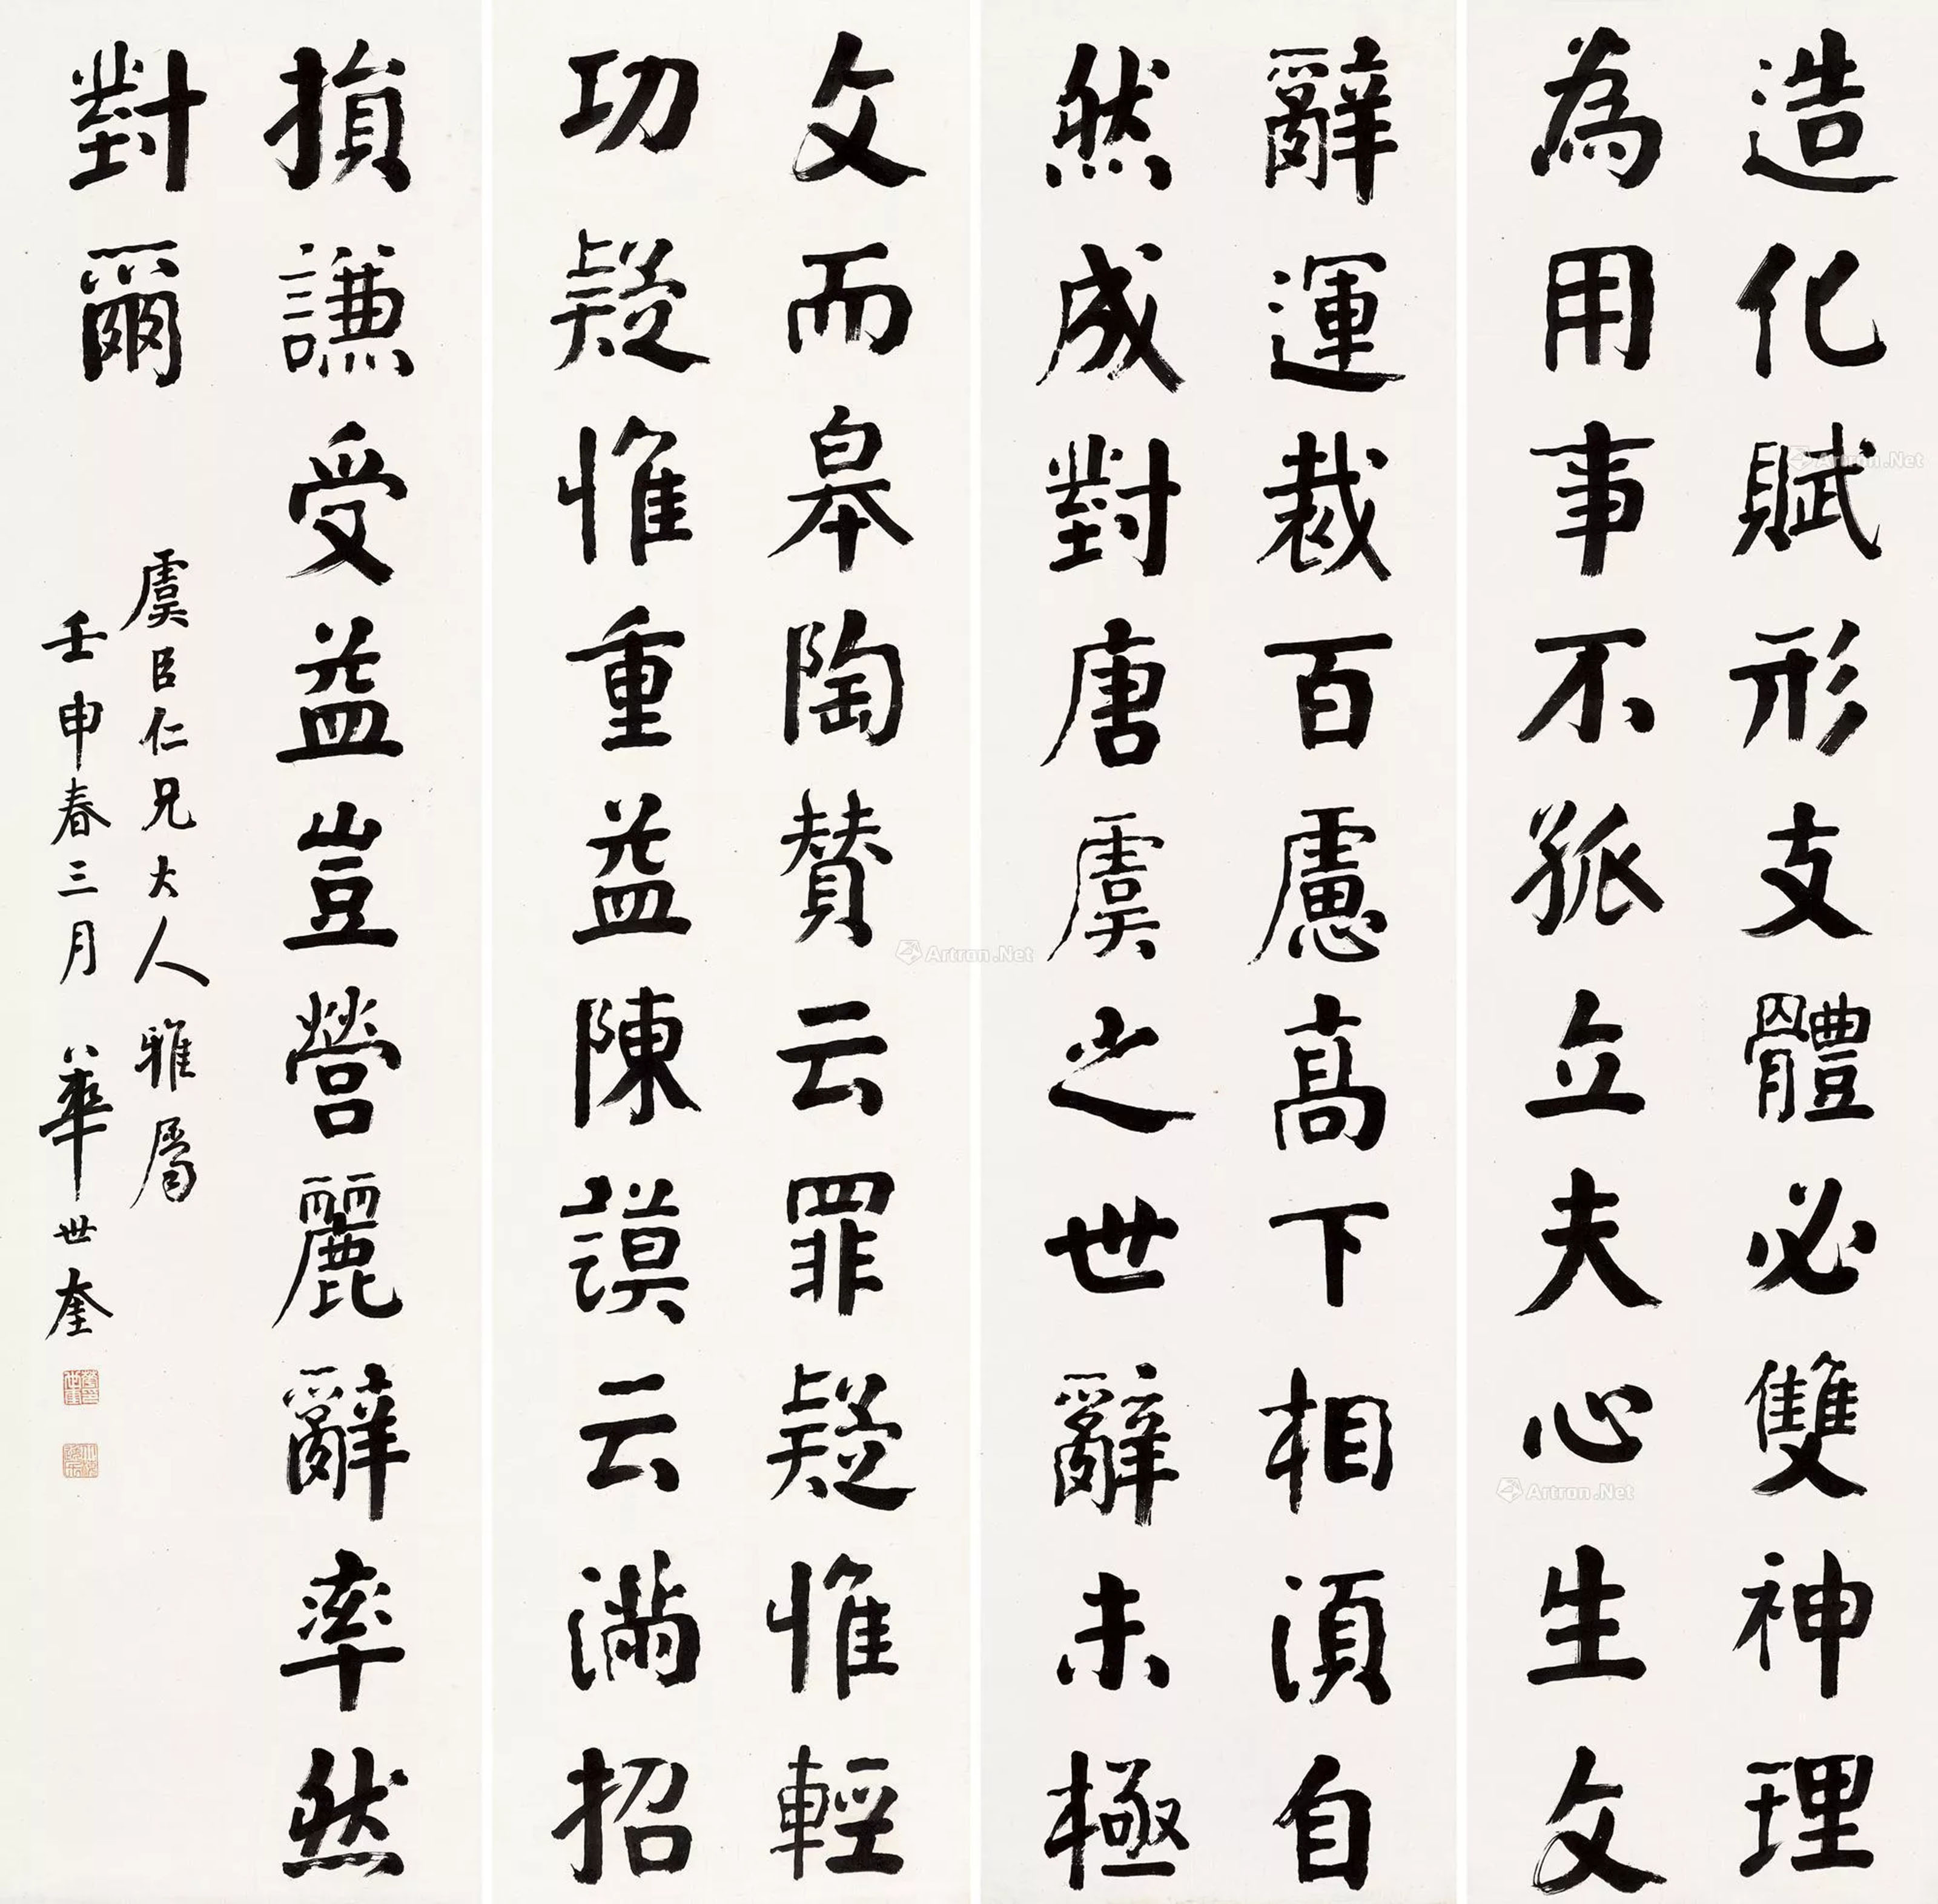 造化賦形支體必雙神理
為用事不孤立夫心生文
辭運裁百慮高下相須自
然成對唐虞之世辭未極
文而皋陶贊云罪疑惟輕
功疑惟重益陳謨云滿招
損謙受益豈營麗辭率然
對爾
虞臣仁兄大人雅屬
壬申春三月 華世奎
Artron.Net
Artron.Net
Artron.Net